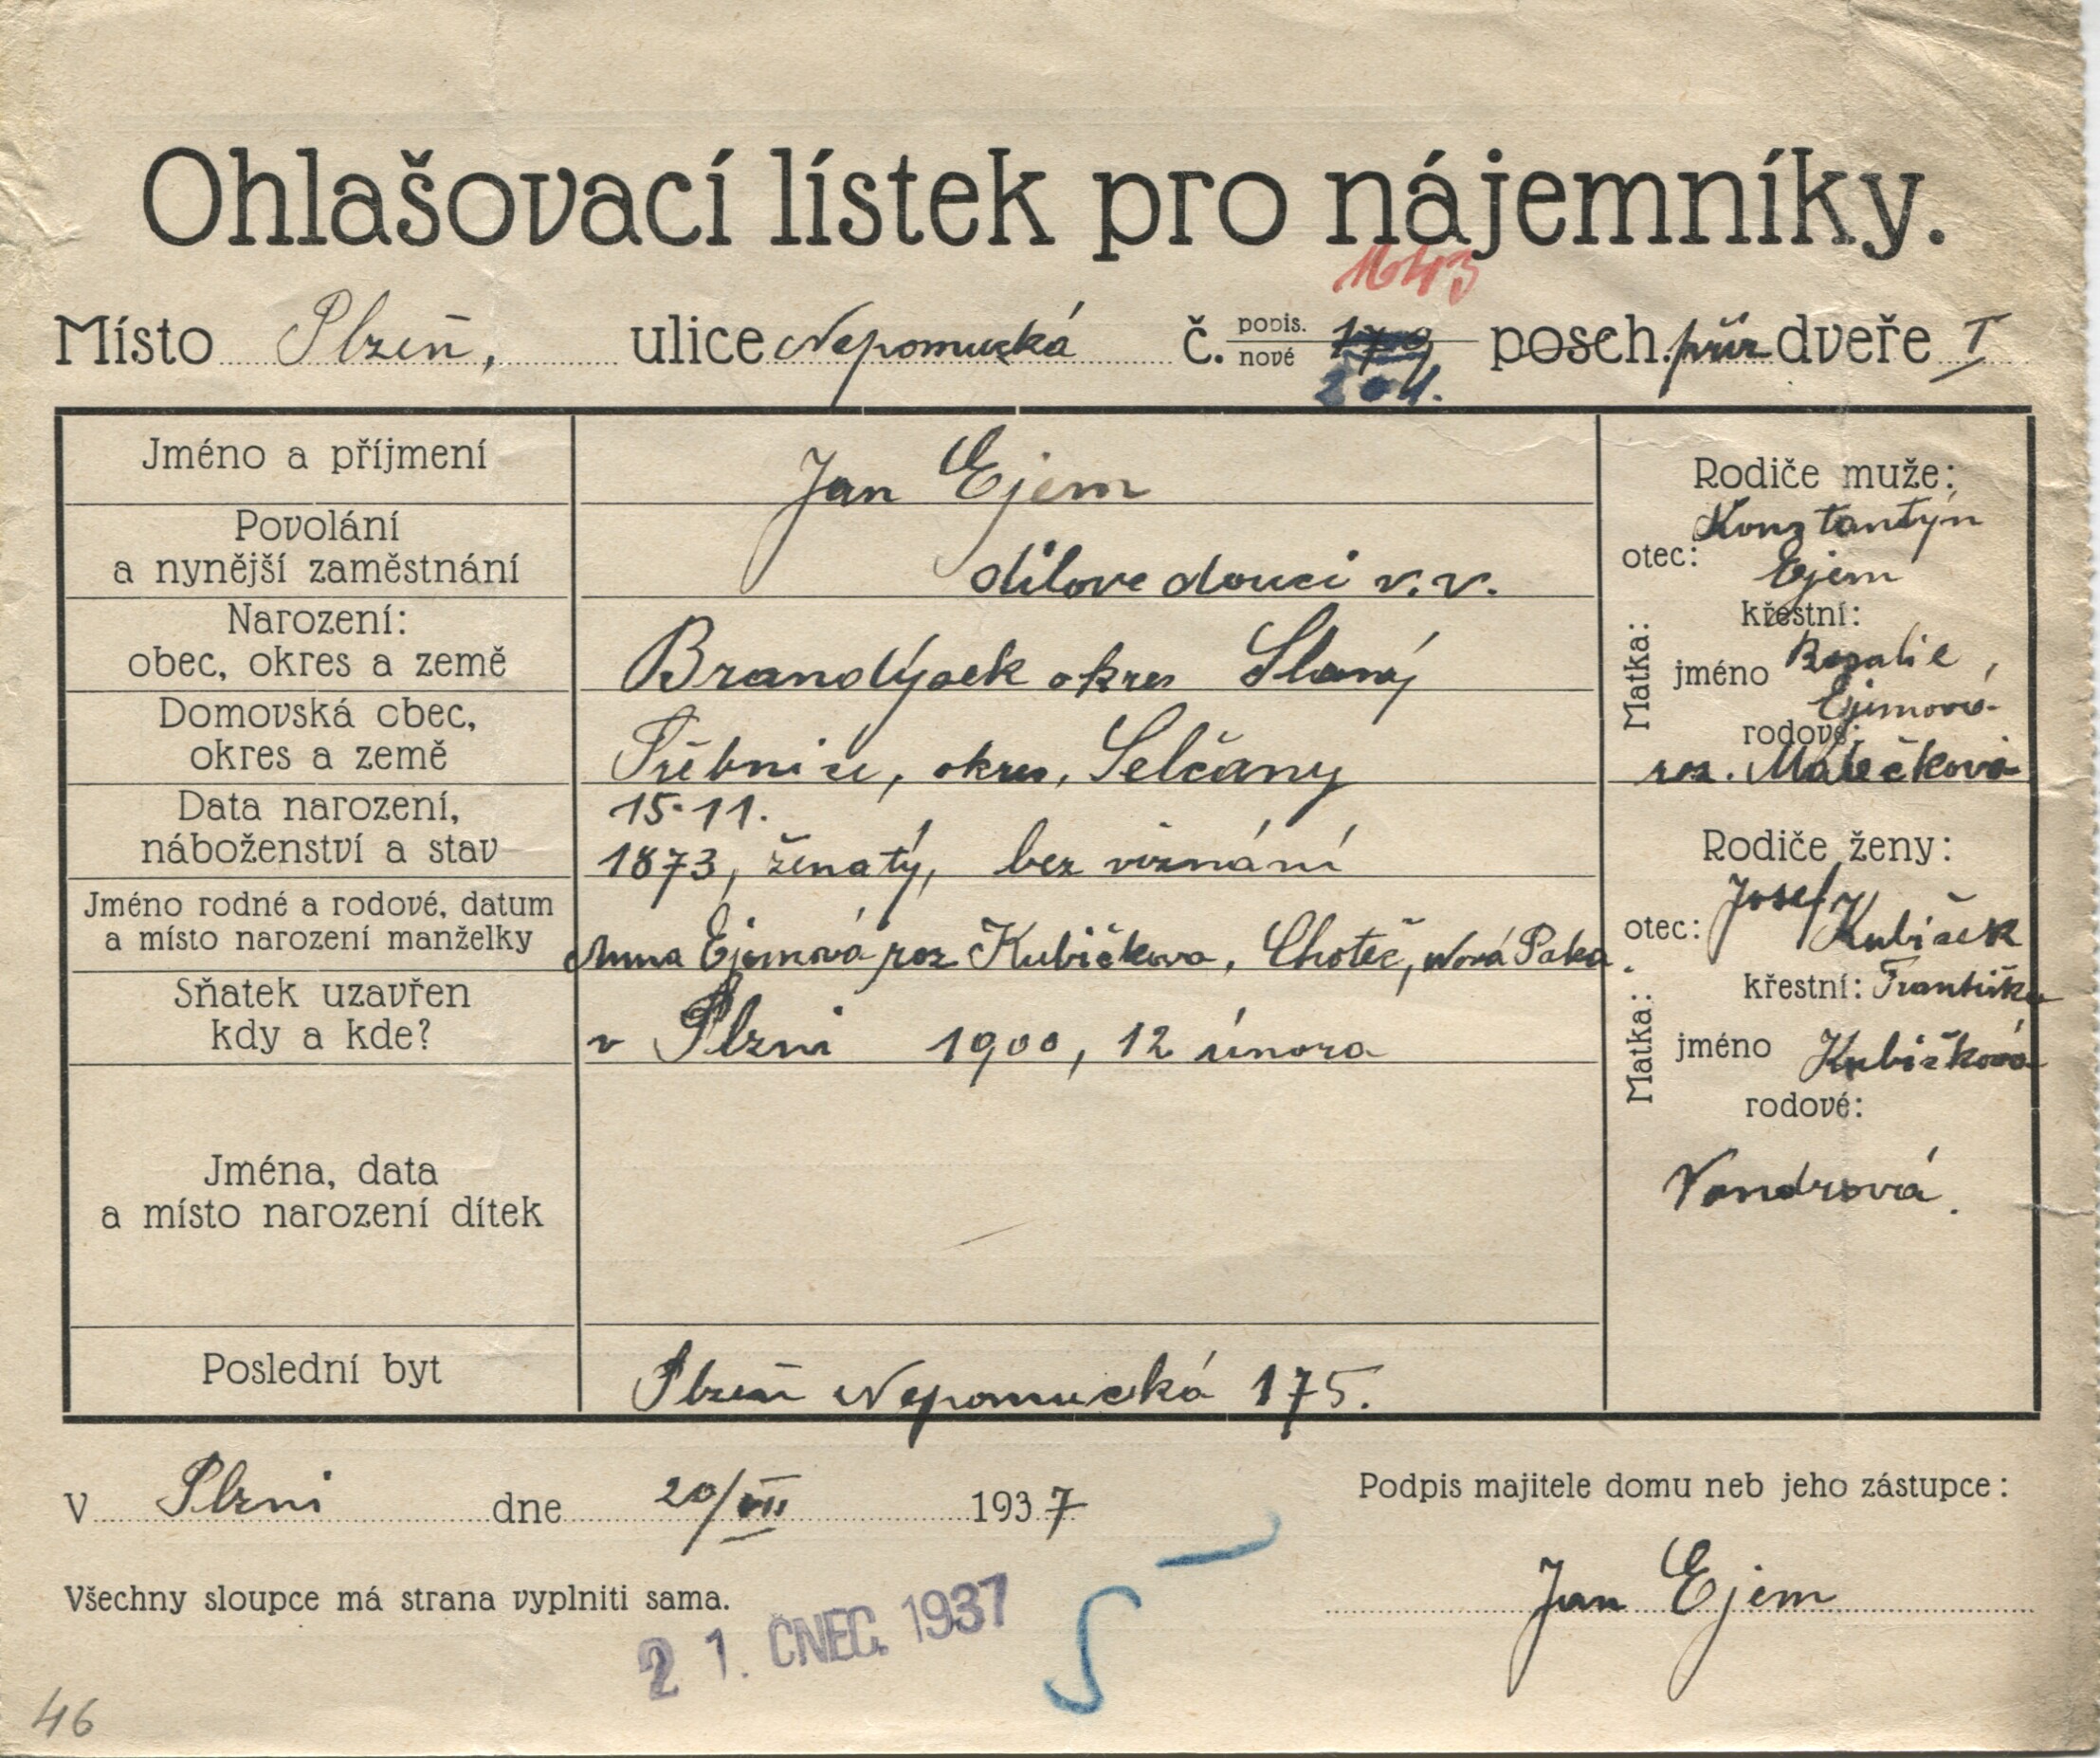 Ohlašovací lístek pro nájemníky.
1643
Místo Plzeň, ulice Nepomucká č. popis. nové posch. příz dveře I
201.
Jméno a příjmení Jan Ejem
Povolání
a nynější zaměstnání dílovedoucí v.v.
Narození:
obec, okres a země Brandýsek okres Slaný
Domovská obec,
okres a země Třebnice, okres, Selčany
Data narození, 15.11.
náboženství a stav 1873, ženatý, bez viznání
Jméno rodné a rodové, datum
a místo narození manželky Anna Ejemová roz Kubičkova, Choteč, Nová Paka.
Sňatek uzavřen
kdy a kde? v Plzni 1900, 12 února
Jména, data
a místo narození dítek
Poslední byt Plzeň Nepomucká 175.
Rodiče muže:
otec: Konztantýn
Ejem
Matka: křestní:
jméno Rozalie,
Ejemová
rodové:
roz. Malečková
Rodiče ženy:
otec: Josef
Kubiček
Matka: křestní: Františka
jméno Kubičková
rodové:
Vondrová.
V Plzni dne 20/VII 1937
Podpis majitele domu neb jeho zástupce:
Jan Ejem
Všechny sloupce má strana vyplniti sama.
21. ČNEC. 1937
46